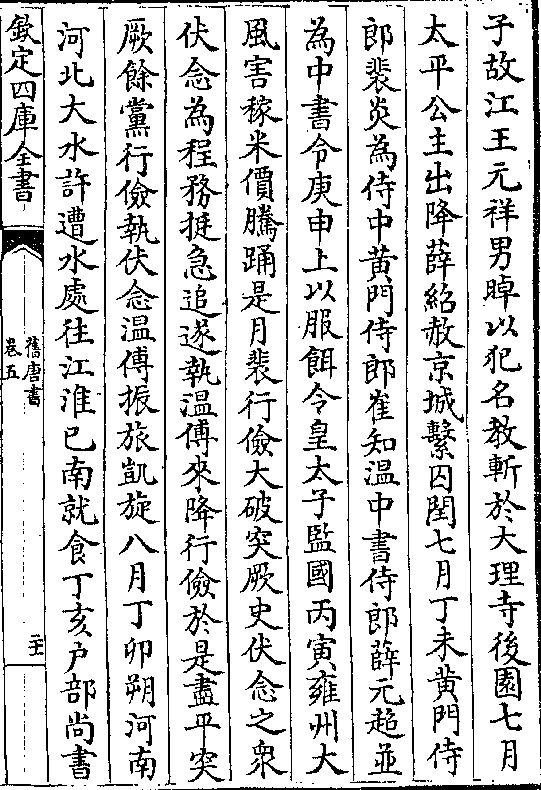 子故江王元祥男晫以犯名教斬於大理寺後園七月
太平公主出降薛紹赦京城繫囚閏七月丁未黄門侍
郎裴炎為侍中黄門侍郎崔知温中書侍郎薛元超並
為中書令庚申上以服餌令皇太子監國丙寅雍州大
風害稼米價騰踊是月裴行儉大破突厥史伏念之衆
伏念為程務挺急追遂執温傅來降行儉於是盡平突
厥餘黨行儉執伏念温傅振旅凱旋八月丁卯朔河南
河北大水許遭水處往江淮已南就食丁亥户部尚書
欽定四庫全書
舊唐書
卷五
二十一